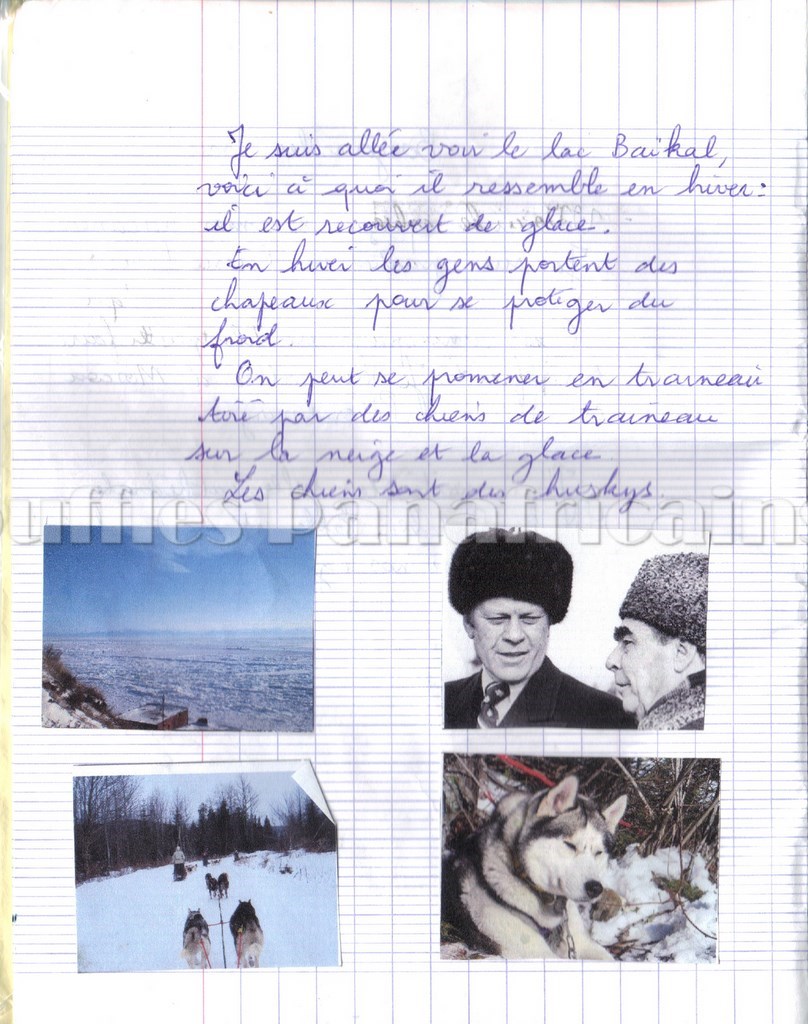 Je suis allée voir le lac Baïkal,
voici à quoi il ressemble en hiver :
il est recouvert de glace.
En hiver les gens portent des
chapeaux pour se protéger du
froid.
On peut se promener en traineau
tiré par des chiens de traineau
sur la neige et la glace.
Les chiens sont des huskys.
ouffles Panafricain